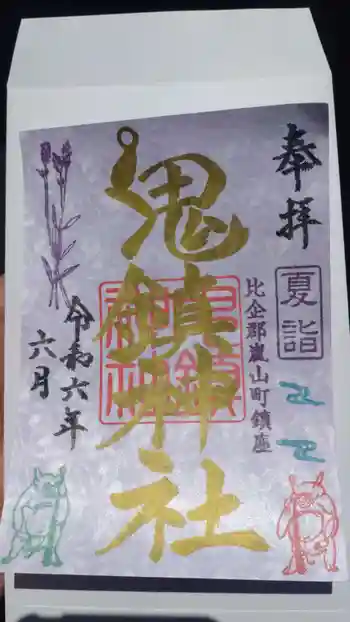 奉拝
夏詣
比企郡嵐山町鎮座
鬼鎮神社
鬼鎮神社
令和六年
六月